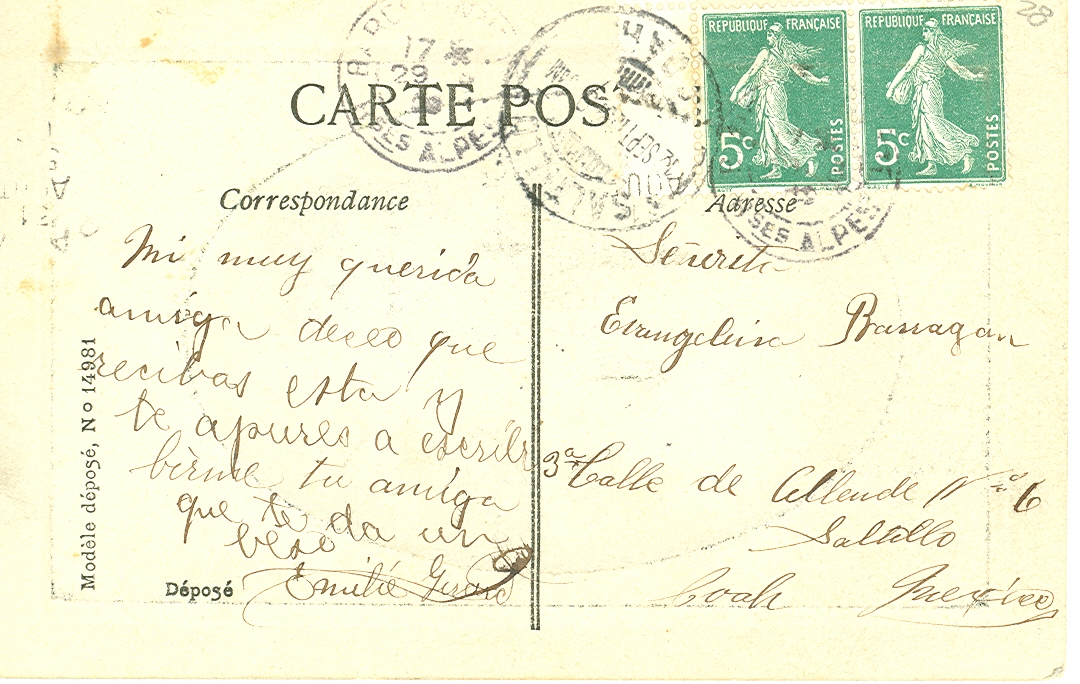 28
REPUBLIQUE FRANÇAISE
5c
POSTES
REPUBLIQUE FRANÇAISE
5c
POSTES
17
29
SES ALPES
SALTILLO
SES ALPES
CARTE POST
Correspondance
Mi muy querida
amiga deseo que
recibas esta y
te apures a escri
birme tu amiga
que te da un
beso
Emilie
Adresse
Señorita
Evangelina Barragan
3a Calle de Allende No 6
Saltillo
Coah México
Modèle déposé, No 14981
Déposé